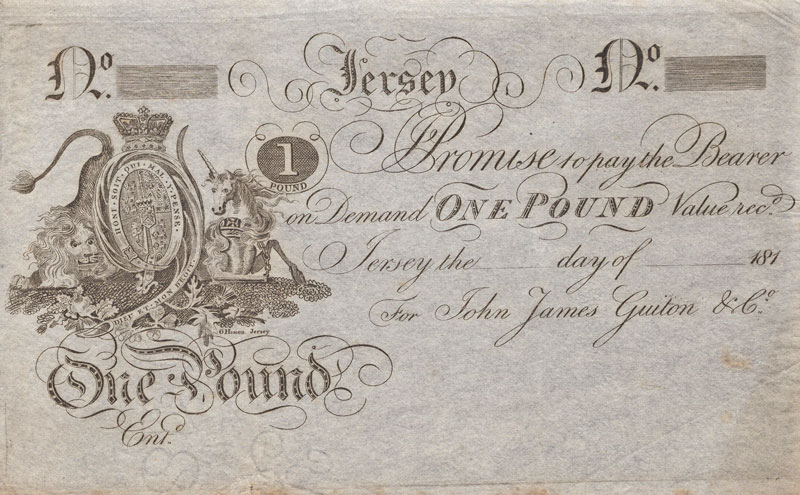 No. Jersey No.
HONI · SOIT · QUI · MAL · Y · PENSE.
1
POUND
I Promise to pay the Bearer
on Demand ONE POUND Value recd.
Jersey the day of 181
For John James Guiton & Co.
DIEU ET MON DROIT
Jersey
One Pound
Entd.